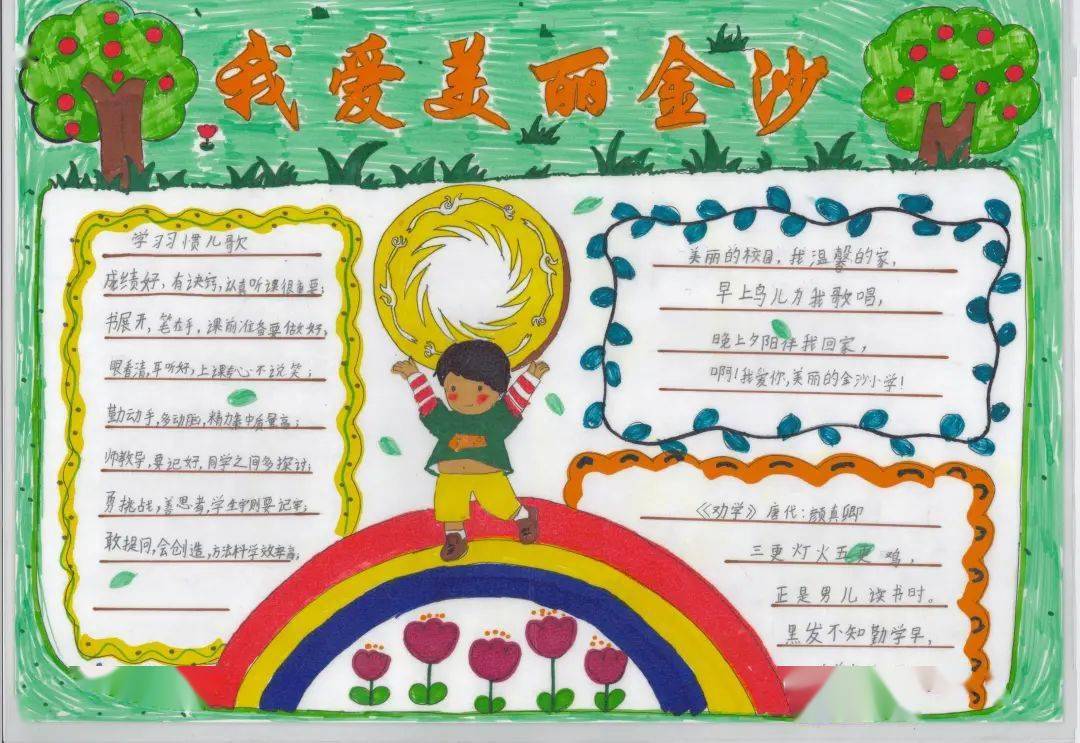 我爱美丽金沙
学习习惯儿歌
成绩好，有诀窍，认真听课很重要；
书展开，笔在手，课前准备要做好，
眼看清，耳听好，上课专心不说笑；
勤动手，多动脑，精力集中质量高；
师教导，要记好，同学之间多探讨；
勇挑战，善思考，学生守则要记牢；
敢提问，会创造，方法科学效率高；
美丽的校园，我温馨的家，
早上鸟儿为我歌唱，
晚上夕阳伴我回家，
啊！我爱你，美丽的金沙小学！
《劝学》唐代：颜真卿
三更灯火五更鸡，
正是男儿读书时。
黑发不知勤学早，